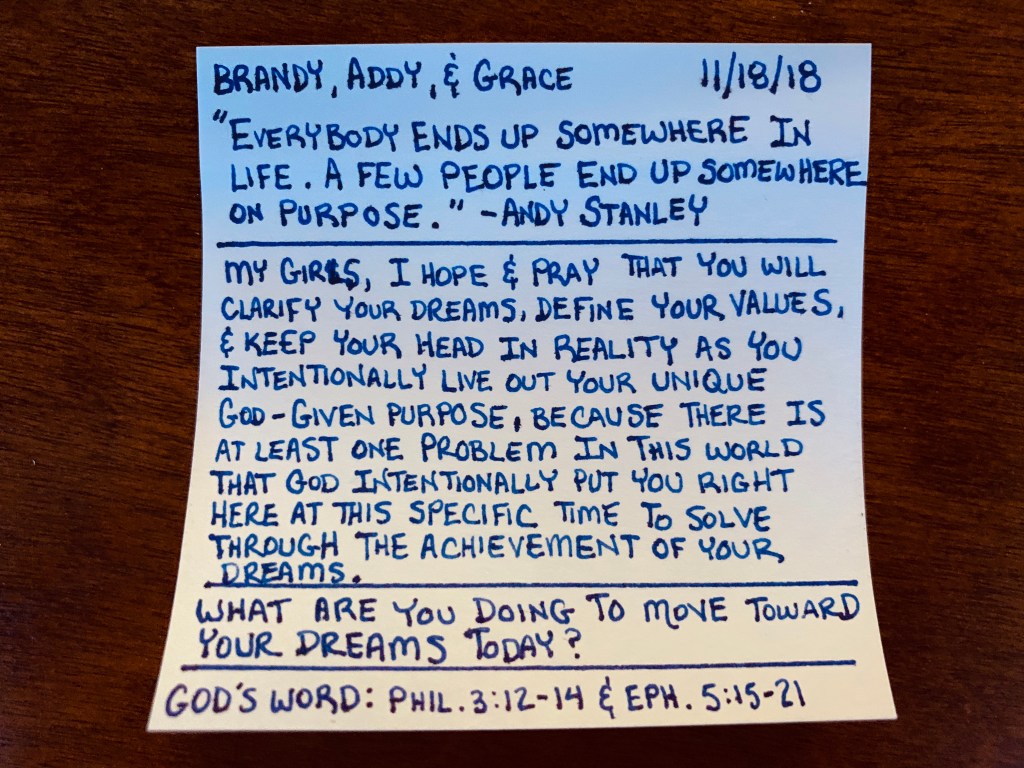 BRANDY, ADDY, & GRACE 11/18/18
"EVERYBODY ENDS UP SOMEWHERE IN
LIFE. A FEW PEOPLE END UP SOMEWHERE
ON PURPOSE." -ANDY STANLEY
MY GIRLS, I HOPE & PRAY THAT YOU WILL
CLARIFY YOUR DREAMS, DEFINE YOUR VALUES,
& KEEP YOUR HEAD IN REALITY AS YOU
INTENTIONALLY LIVE OUT YOUR UNIQUE
GOD-GIVEN PURPOSE, BECAUSE THERE IS
AT LEAST ONE PROBLEM IN THIS WORLD
THAT GOD INTENTIONALLY PUT YOU RIGHT
HERE AT THIS SPECIFIC TIME TO SOLVE
THROUGH THE ACHIEVEMENT OF YOUR
DREAMS.
WHAT ARE YOU DOING TO MOVE TOWARD
YOUR DREAMS TODAY?
GOD'S WORD: PHIL. 3:12-14 & EPH. 5:15-21